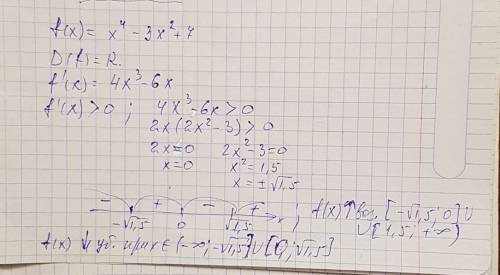 f(x) = x⁴ − 3x² + 7
D(f) = R.
f'(x) = 4x³ − 6x
f'(x) > 0 ; 4x³ − 6x > 0
2x(2x² − 3) > 0
2x = 0 2x² − 3 = 0
x = 0 x² = 1,5
x = ± √1,5
− + − +
−√1,5 0 √1,5 x ; f(x) ↑ воз. [−√1,5; 0] ∪
∪ [1,5; +∞)
f(x) ↓ уб. при x ∈ (−∞; −√1,5] ∪ [0; √1,5]